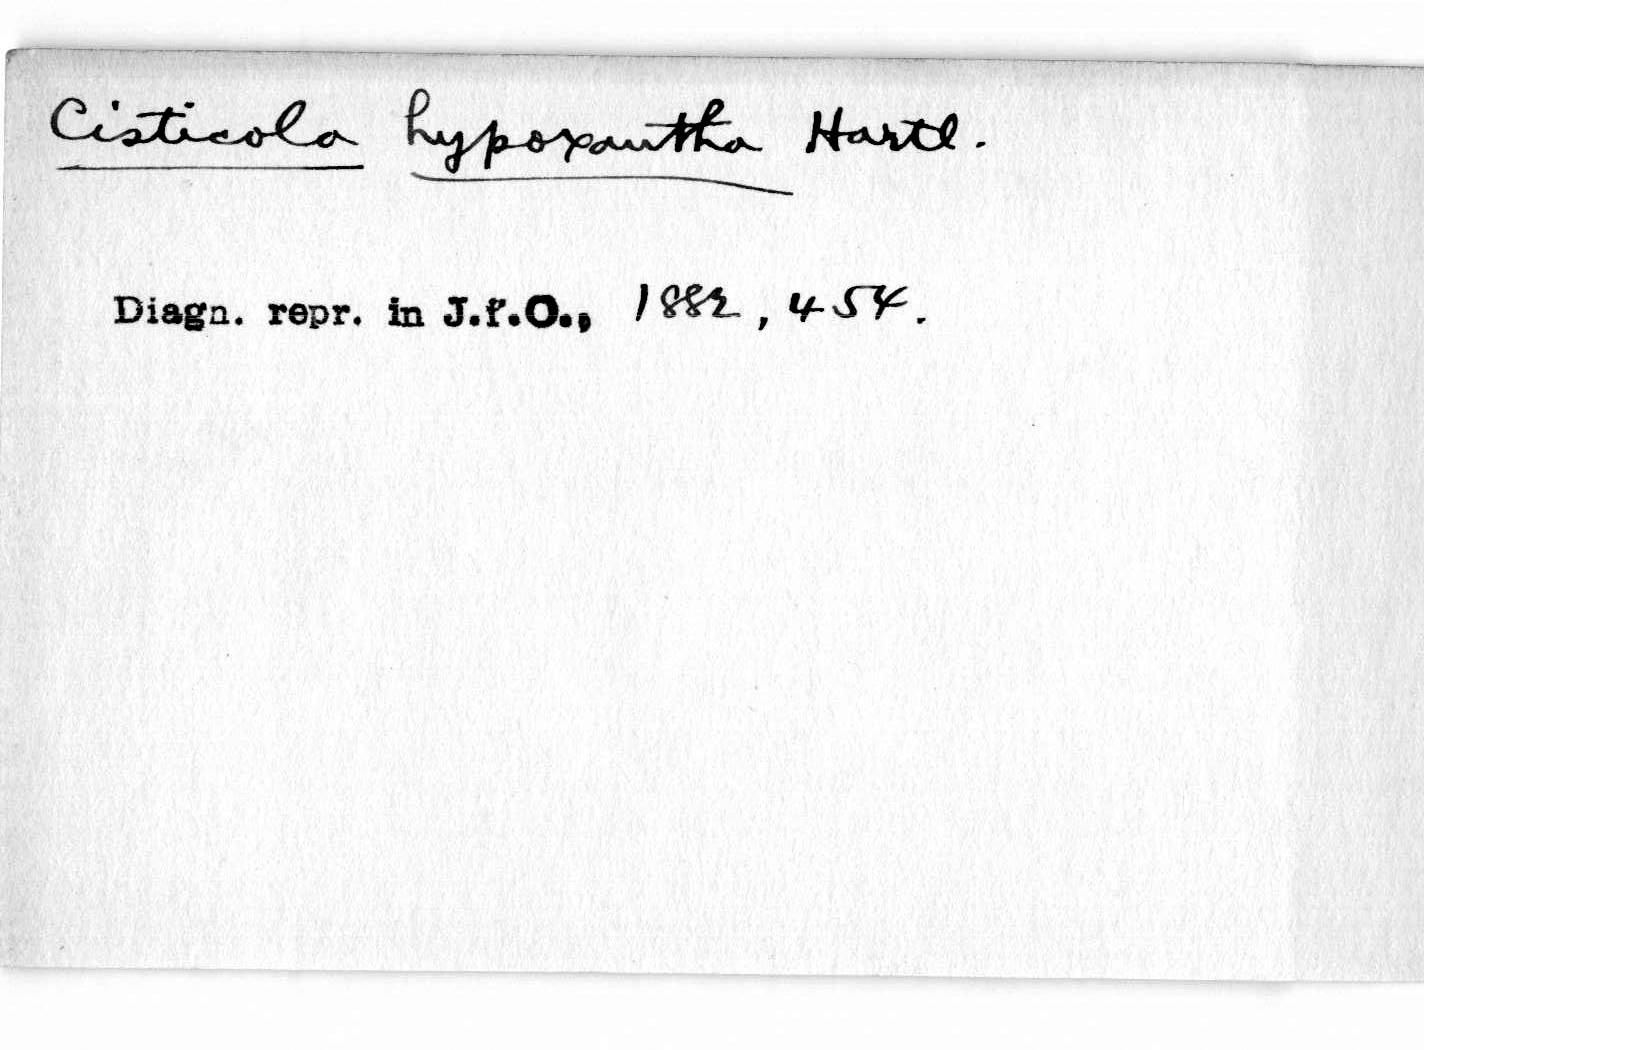 Cisticola hypoxantha Hartl.
Diagn. repr. in J.f.O., 1882, 454.